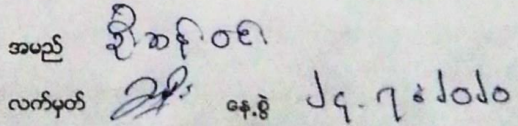 အမည် ဦးဆန်းဝင်း
လက်မှတ် နေ့စွဲ ၂၄.၇.၂၀၂၀